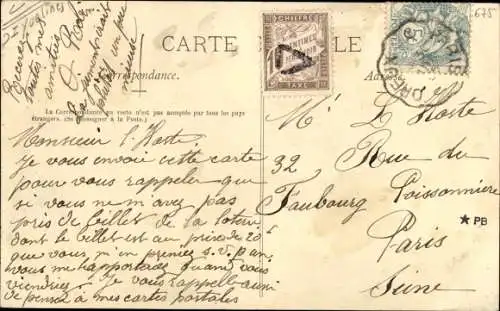 CARTE POSTALE
Correspondance.
Adresse
(La Correspondance au verso n'est pas acceptée par tous les pays
étrangers. (Se renseigner à la Poste.)
Recevez
toutes mes
amitiés
CHIFFRE
TAXE
675
Monsieur l'Hoste
Je vous envoi cette carte
pour vous rappeler que
si vous ne m'avez pas
pris de billet de la loterie
dont le billet est au prix de 20
que vous m'en preniez s.v.p. en
vous me l'apporterez quand vous
viendrez. Je vous rappelle aussi
de penser à mes cartes postales
Mr L'Hoste
32 Rue du
Faubourg Poissonnière
Paris
Seine
★ PB